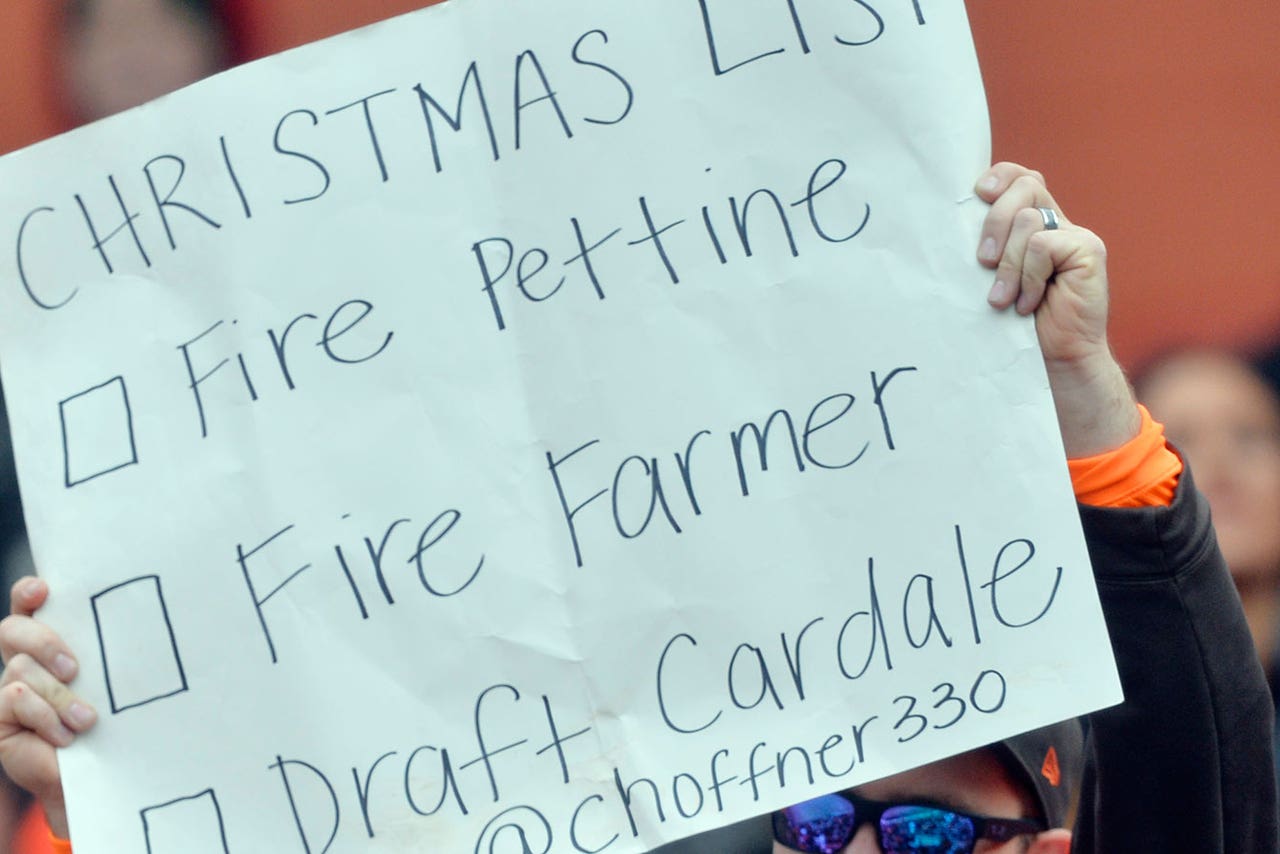 CHRISTMAS LIST
Fire Pettine
Fire Farmer
Draft Cardale
@choffner330